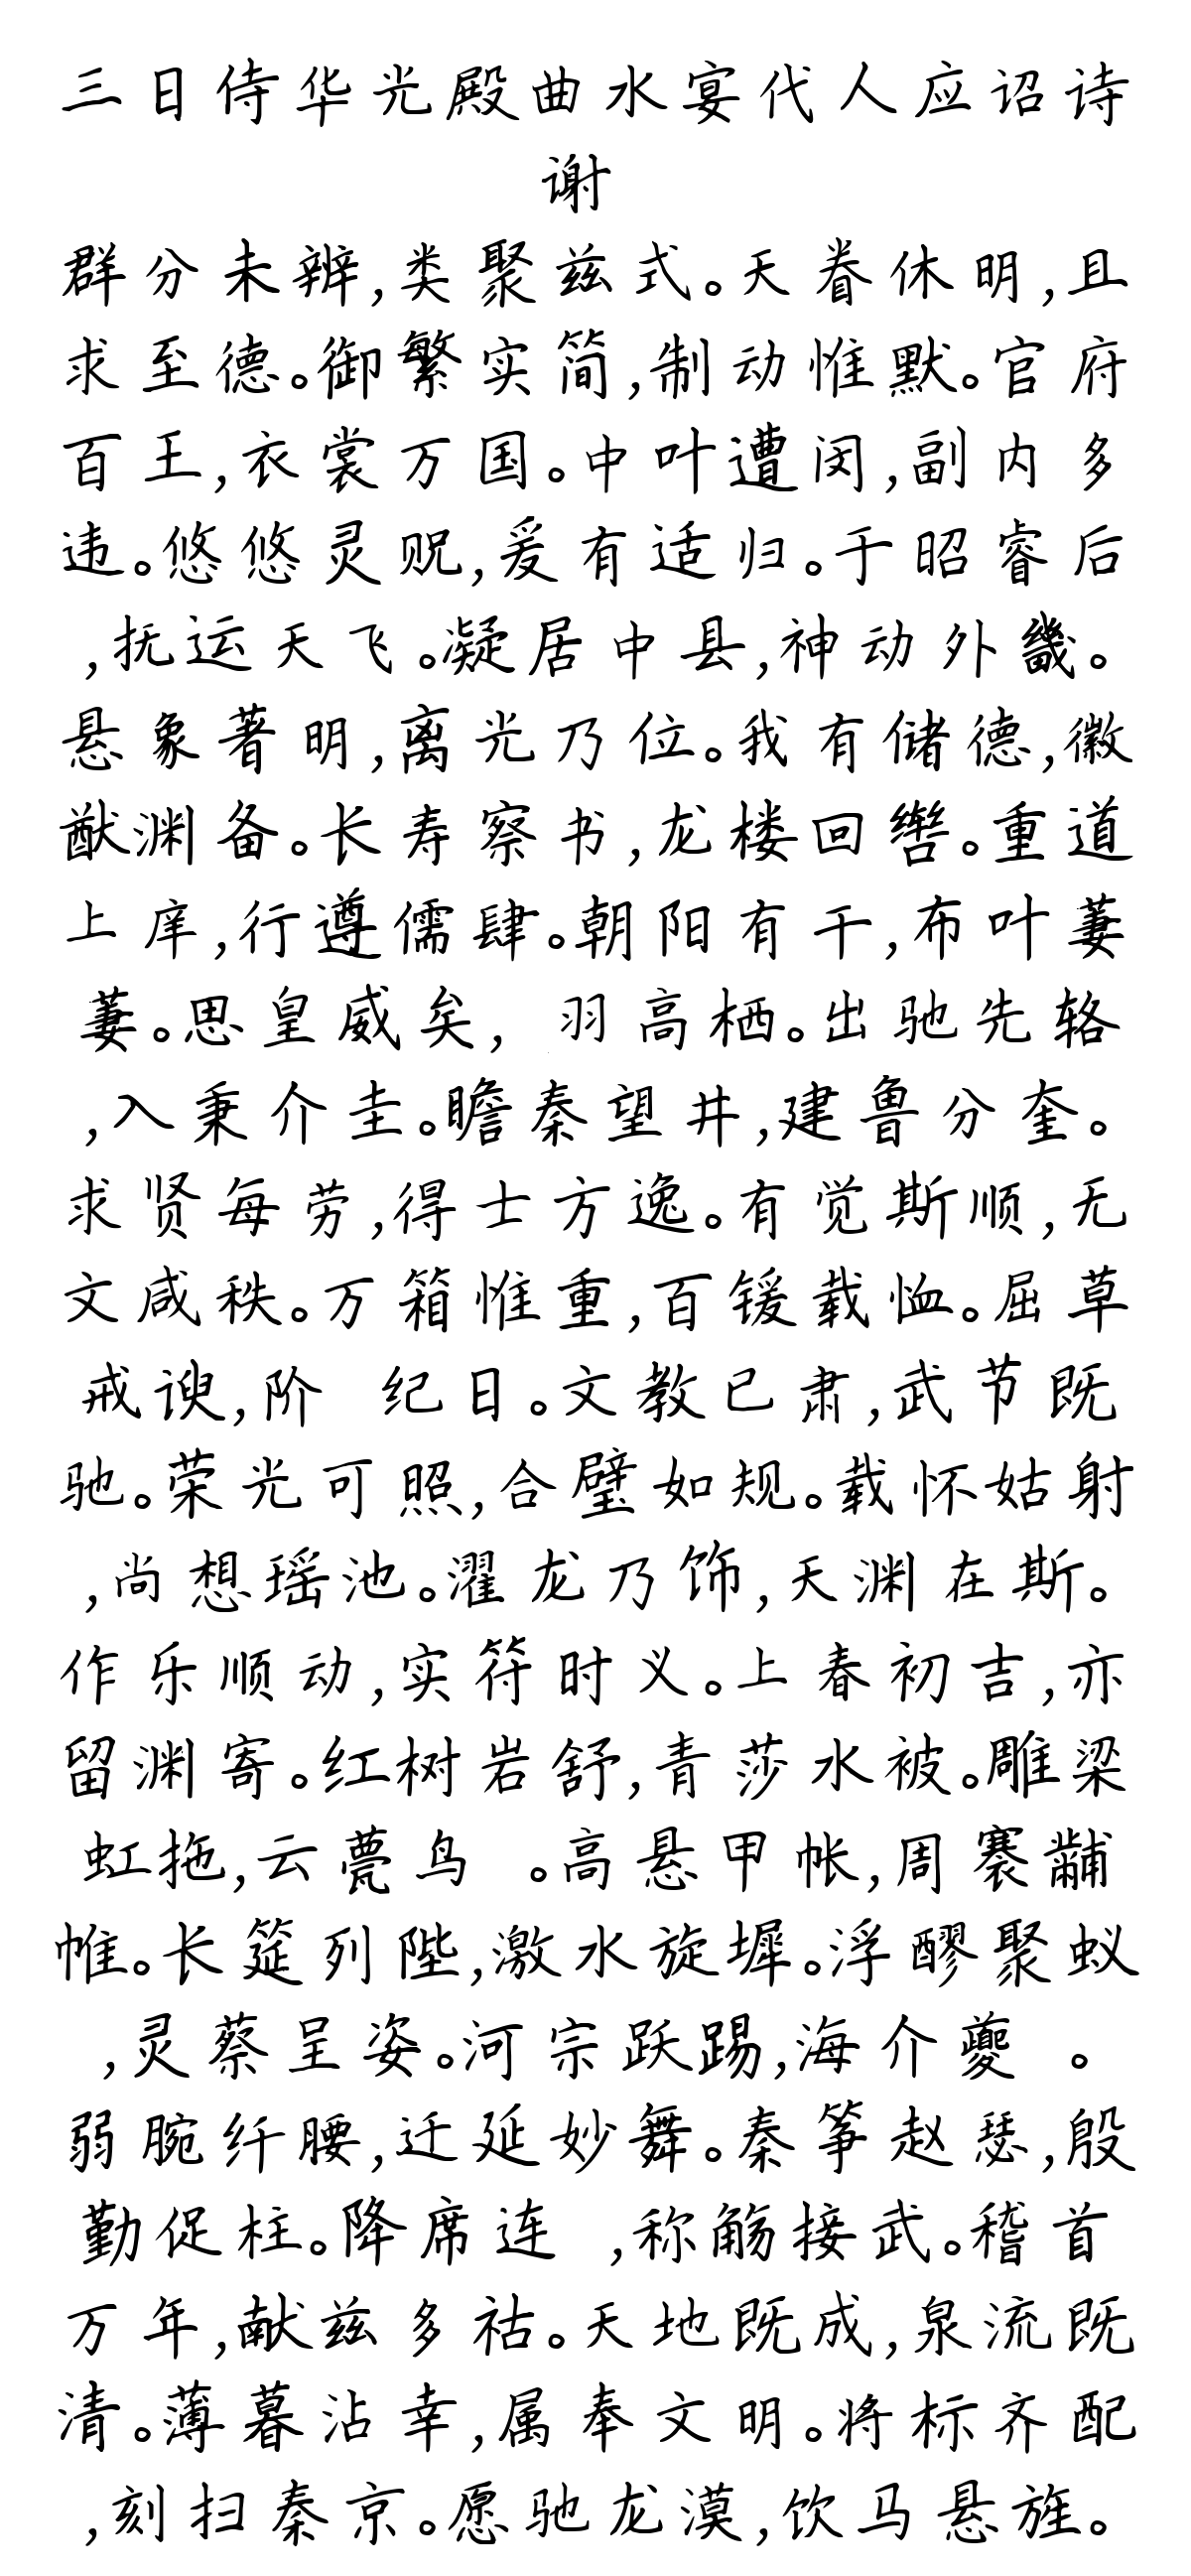 三日侍华光殿曲水宴代人应诏诗
谢
群分未辨,类聚兹式。天眷休明,且
求至德。御繁实简,制动惟默。官府
百王,衣裳万国。中叶遭闵,副内多
违。悠悠灵贶,爰有适归。于昭睿后
,抚运天飞。凝居中县,神动外畿。
悬象著明,离光乃位。我有储德,徽
猷渊备。长寿察书,龙楼回辔。重道
上庠,行遵儒肆。朝阳有干,布叶萋
萋。思皇威矣, 羽高栖。出驰先辂
,入秉介圭。瞻秦望井,建鲁分奎。
求贤每劳,得士方逸。有觉斯顺,无
文咸秩。万箱惟重,百锾载恤。屈草
戒谀,阶 纪日。文教已肃,武节既
驰。荣光可照,合璧如规。载怀姑射
,尚想瑶池。濯龙乃饰,天渊在斯。
作乐顺动,实符时义。上春初吉,亦
留渊寄。红树岩舒,青莎水被。雕梁
虹拖,云甍鸟 。高悬甲帐,周褰黼
帷。长筵列陛,激水旋墀。浮醪聚蚁
,灵蔡呈姿。河宗跃踢,海介夔 。
弱腕纤腰,迁延妙舞。秦筝赵瑟,殷
勤促柱。降席连 ,称觞接武。稽首
万年,献兹多祜。天地既成,泉流既
清。薄暮沾幸,属奉文明。将标齐配
,刻扫秦京。愿驰龙漠,饮马悬旌。